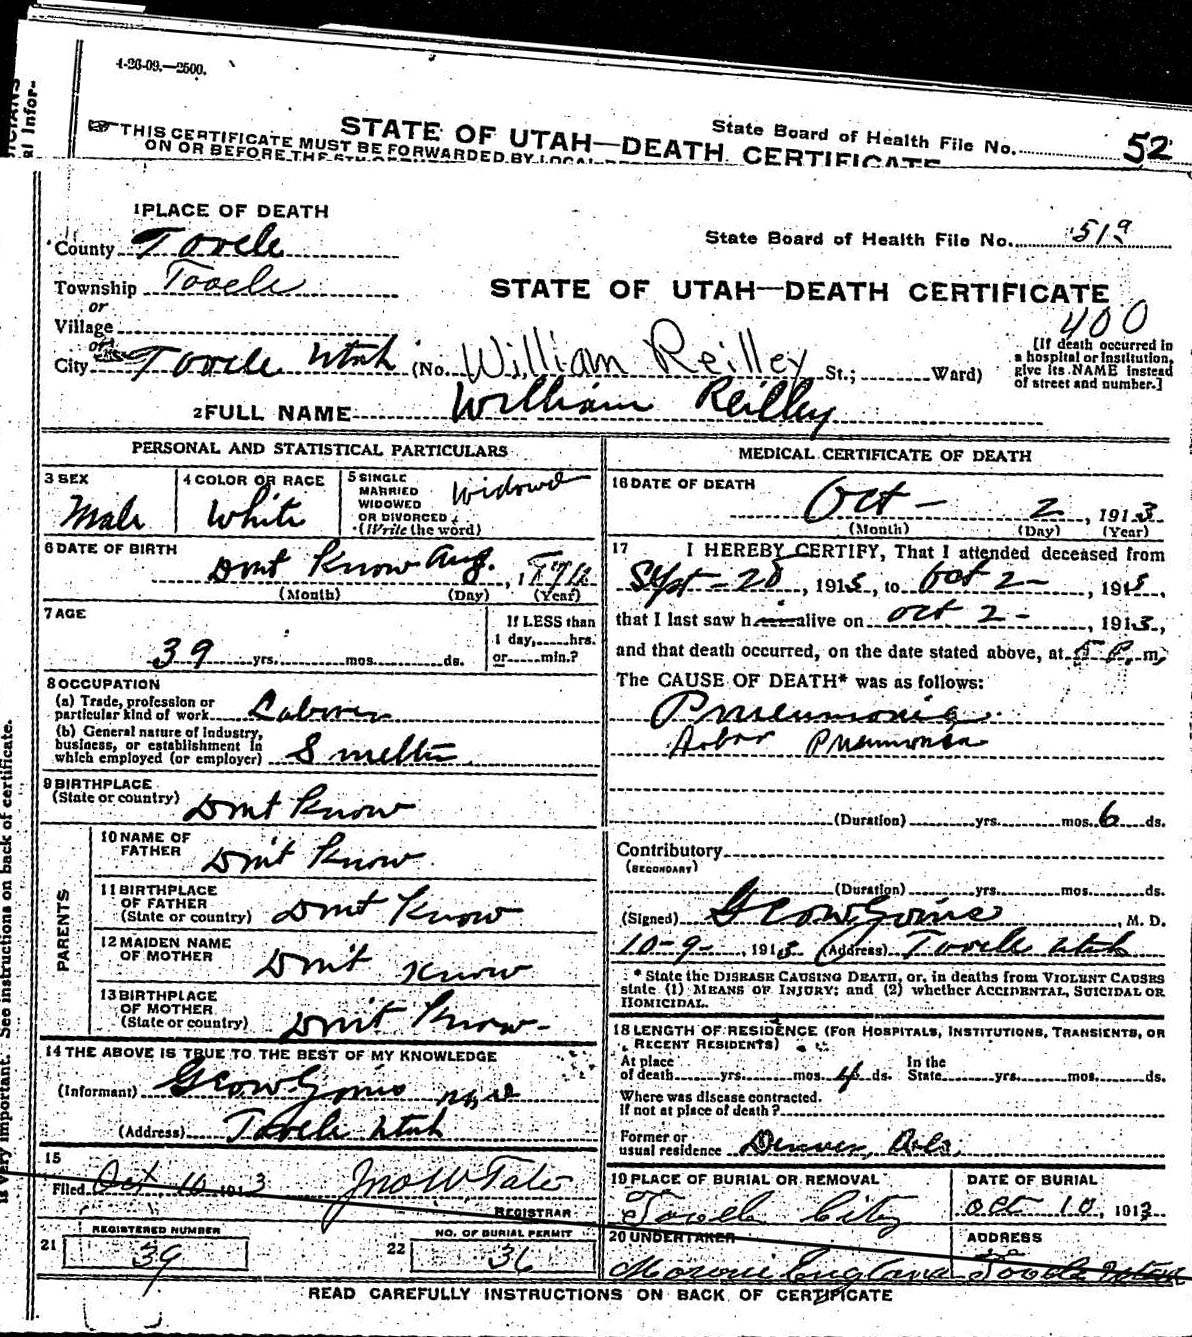 1-26-09.—2500.
State Board of Health File No. 52
STATE OF UTAH—DEATH CERTIFICATE
THIS CERTIFICATE MUST BE FORWARDED BY LOCAL
ON OR BEFORE THE 5TH OF
1 PLACE OF DEATH
County Tooele
State Board of Health File No. 519
Township Tooele
STATE OF UTAH—DEATH CERTIFICATE
or
400
Village
or
City Tooele Utah (No. William Reilley St.; Ward)
[If death occurred in
a hospital or institution,
give its NAME instead
of street and number.]
2 FULL NAME William Reilley
PERSONAL AND STATISTICAL PARTICULARS
3 SEX
Male
4 COLOR OR RACE
White
5 SINGLE
MARRIED
WIDOWED
OR DIVORCED
(Write the word)
Widowed
6 DATE OF BIRTH
Dont Know Aug. , 1874
(Month) (Day) (Year)
7 AGE
39 yrs. mos. ds.
If LESS than
1 day, hrs.
or min.?
8 OCCUPATION
(a) Trade, profession or
particular kind of work Laborer
(b) General nature of industry,
business, or establishment in
which employed (or employer) Smelter
9 BIRTHPLACE
(State or country) Dont Know
PARENTS
10 NAME OF
FATHER Dont Know
11 BIRTHPLACE
OF FATHER
(State or country) Dont Know
12 MAIDEN NAME
OF MOTHER Dont Know
13 BIRTHPLACE
OF MOTHER
(State or country) Dont Know
14 THE ABOVE IS TRUE TO THE BEST OF MY KNOWLEDGE
(Informant)
(Address) Tooele Utah
15
Filed Oct 10 1913 Jno W Tate
REGISTRAR
REGISTERED NUMBER
21 39
NO. OF BURIAL PERMIT
22 36
MEDICAL CERTIFICATE OF DEATH
16 DATE OF DEATH
Oct - 2 , 1913
(Month) (Day) (Year)
17 I HEREBY CERTIFY, That I attended deceased from
Sept - 28 , 1913, to Oct 2 - , 1913,
that I last saw h alive on Oct 2 - , 1913,
and that death occurred, on the date stated above, at 5 P. m,
The CAUSE OF DEATH* was as follows:
Pneumonia
Lobar Pneumonia
(Duration) yrs. mos. 6 ds.
Contributory
(SECONDARY)
(Duration) yrs. mos. ds.
(Signed) , M. D.
10-9- , 1913 (Address) Tooele Utah
* State the DISEASE CAUSING DEATH, or, in deaths from VIOLENT CAUSES
state (1) MEANS OF INJURY; and (2) whether ACCIDENTAL, SUICIDAL OR
HOMICIDAL.
18 LENGTH OF RESIDENCE (FOR HOSPITALS, INSTITUTIONS, TRANSIENTS, OR
RECENT RESIDENTS)
At place
of death yrs. mos. ds.
In the
State yrs. mos. ds.
Where was disease contracted.
If not at place of death?
Former or
usual residence Denver,
19 PLACE OF BURIAL OR REMOVAL
Tooele City
DATE OF BURIAL
Oct 10, 1913
20 UNDERTAKER
Moroni England
ADDRESS
Tooele
READ CAREFULLY INSTRUCTIONS ON BACK OF CERTIFICATE
is very important. See instructions on back of certificate.